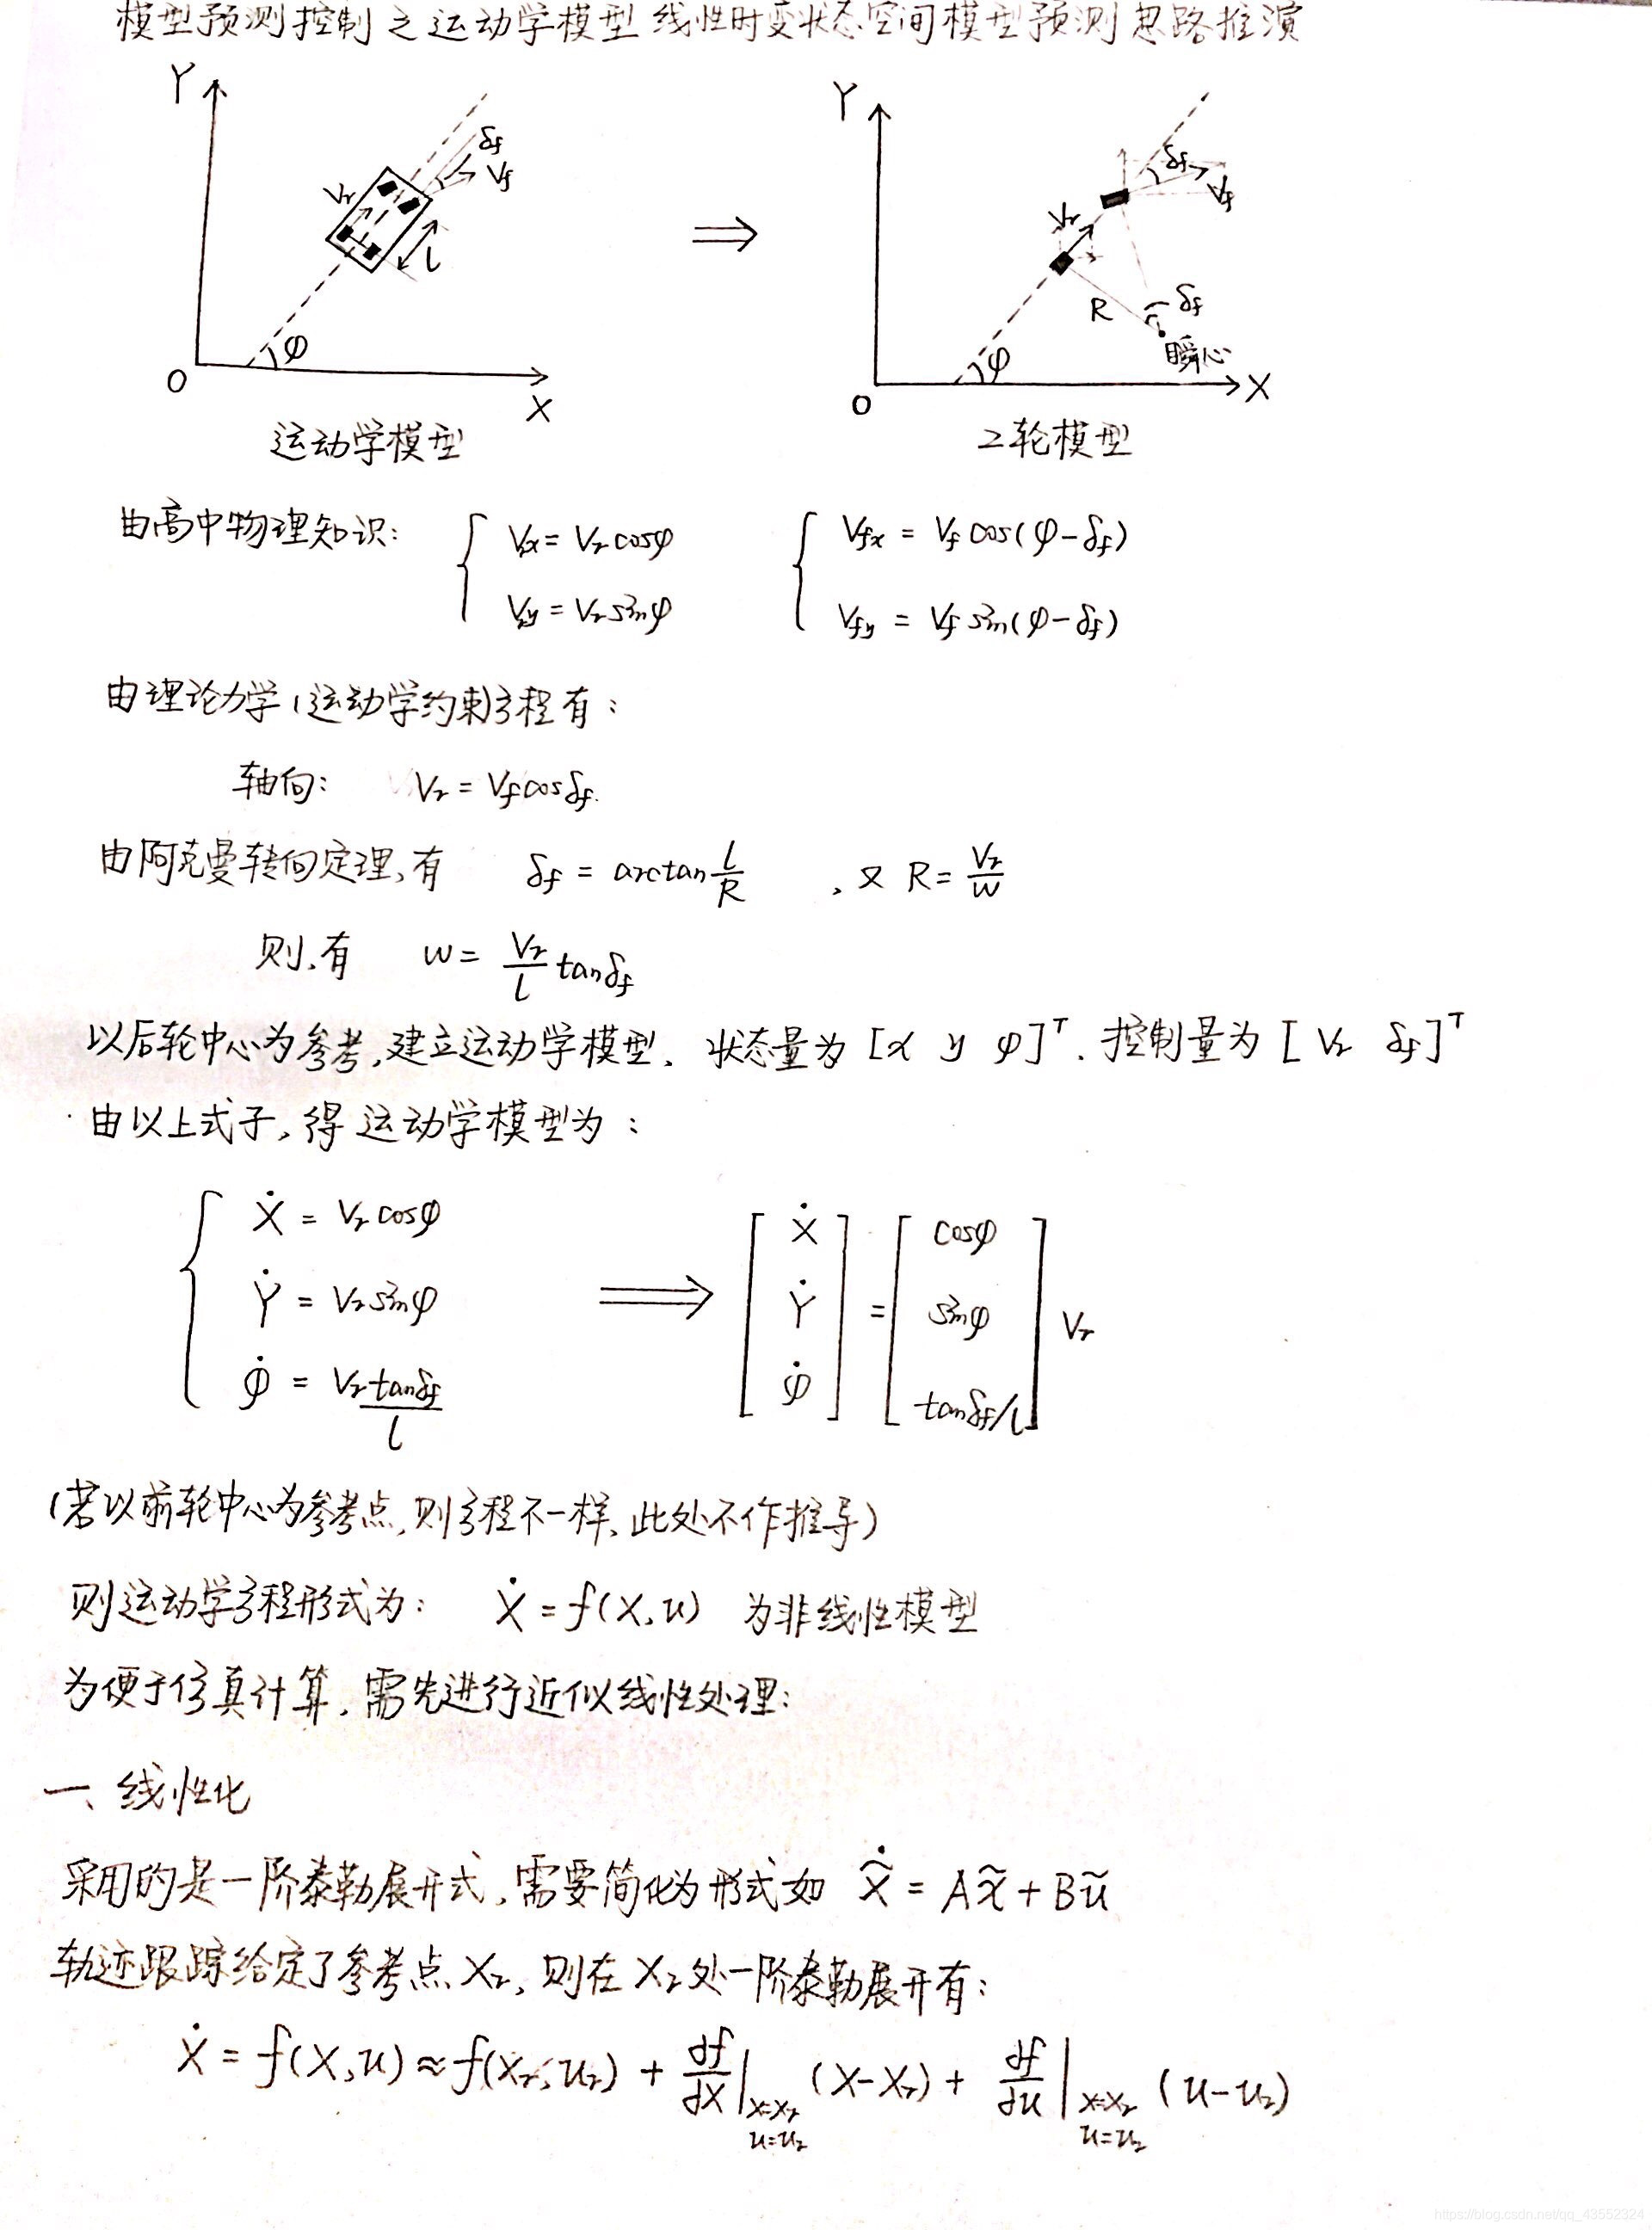 模型预测控制之运动学模型线性时变状态空间模型预测思路推演
Y δf Vf Vr l φ O X
⇒
Y δf Vf Vr R δf 瞬心 φ O X
运动学模型 2轮模型
由高中物理知识: { Vrx = Vr cosφ { Vfx = Vf cos(φ-δf)
Vry = Vr sinφ Vfy = Vf sin(φ-δf)
由理论力学(运动学约束)方程有:
轴向: Vr = Vf cosδf.
由阿克曼转向定理,有 δf = arctan L/R , 又 R = Vr/w
则,有 w = Vr/l tanδf
以后轮中心为参考,建立运动学模型. 状态量为 [x y φ]ᵀ. 控制量为 [Vr δf]ᵀ
由以上式子,得运动学模型为:
{ Ẋ = Vr cosφ [Ẋ] = [cosφ]
Ẏ = Vr sinφ ⇒ [Ẏ] [sinφ] Vr
φ̇ = Vr tanδf / l [φ̇] [tanδf/l]
(若以前轮中心为参考点,则方程不一样、此处不作推导)
则运动学方程形式为: Ẋ = f(X,u) 为非线性模型
为便于仿真计算,需先进行近似线性处理:
一、线性化
采用的是一阶泰勒展开式,需要简化为形式如 X̃̇ = Ax̃ + Bũ
轨迹跟踪给定了参考点Xr, 则在Xr处一阶泰勒展开有:
Ẋ = f(X,u) ≈ f(Xr,ur) + ∂f/∂X |X=Xr u=ur (X-Xr) + ∂f/∂u |X=Xr u=ur (u-ur)
https://blog.csdn.net/qq_43552324